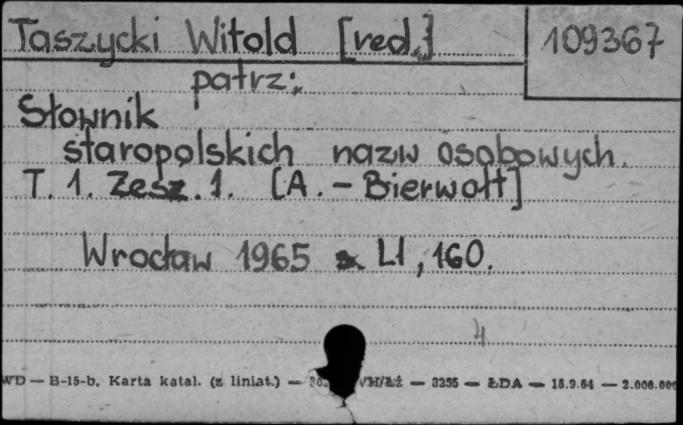 Taszycki Witold [red.]
109367
patrz:
Słownik
staropolskich nazw osobowych.
T. 1. Zesz. 1. [A. - Bierwołt]
Wrocław 1965 LI, 160.
4
WD — B-15-b. Karta katal. (z liniat.) — VH/Łż — 3255 — ŁDA — 15.9.64 — 2.000.000